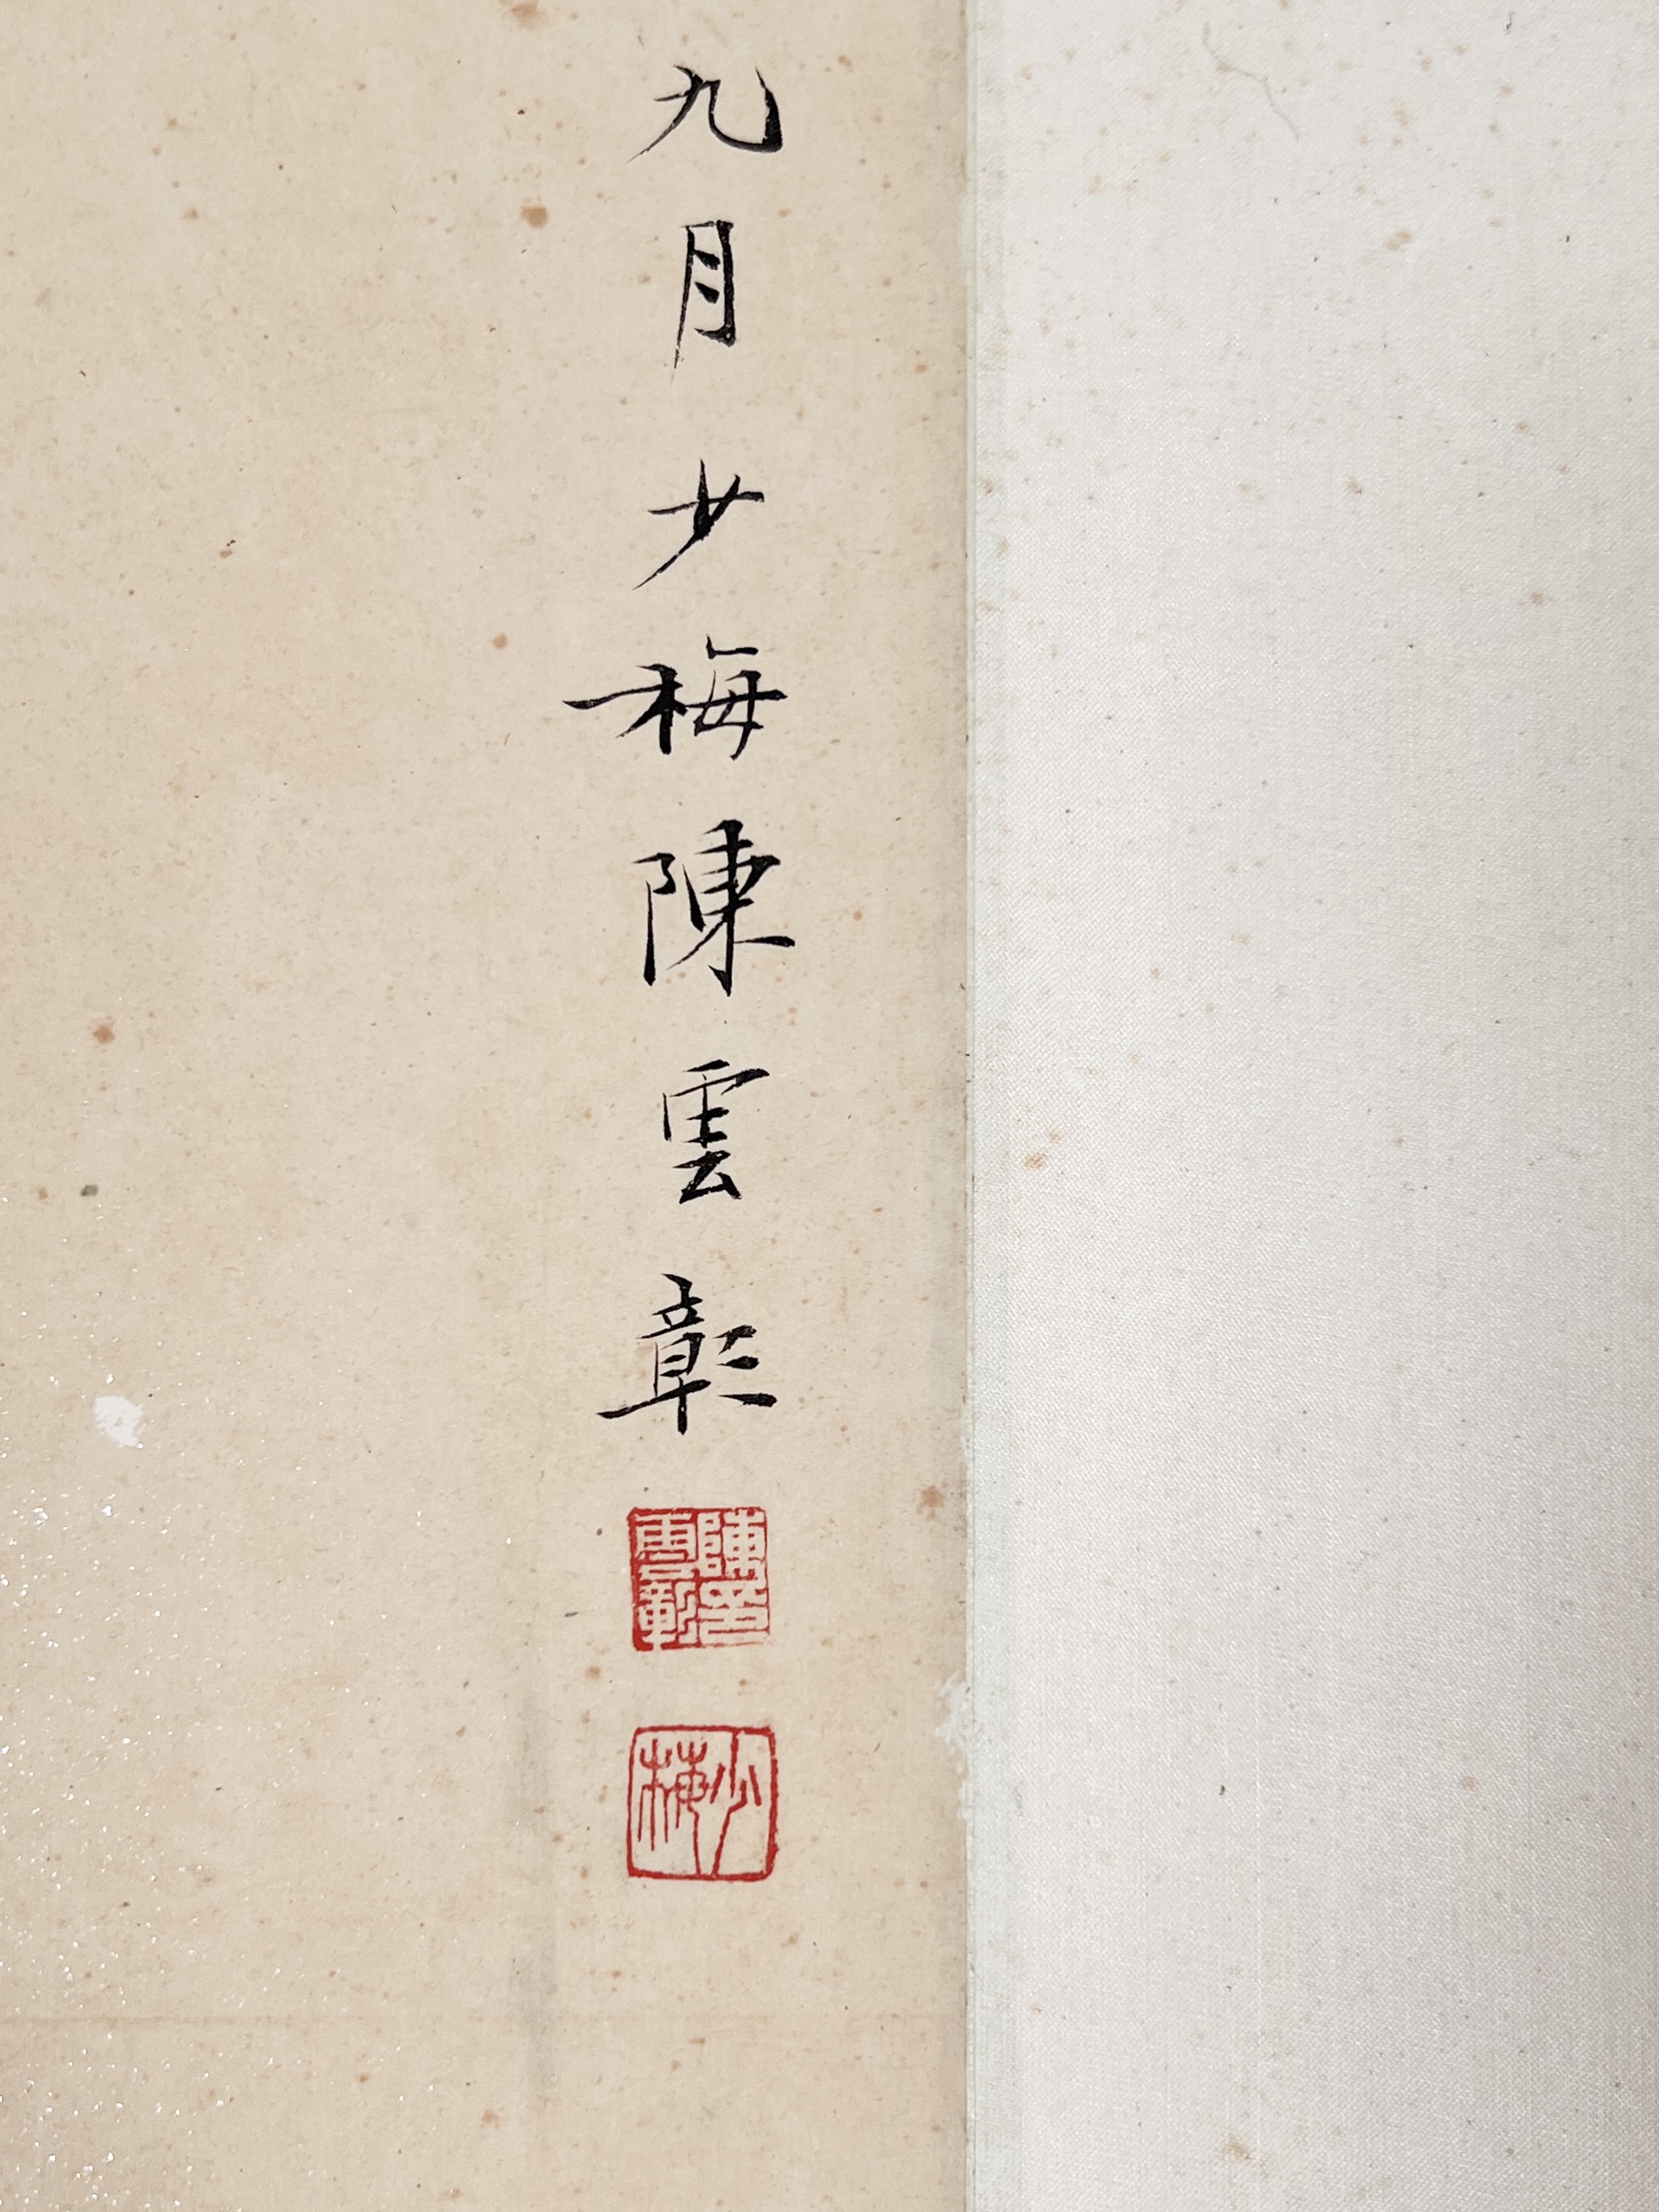 九月少梅陳雲彰
陳印雲彰
少梅